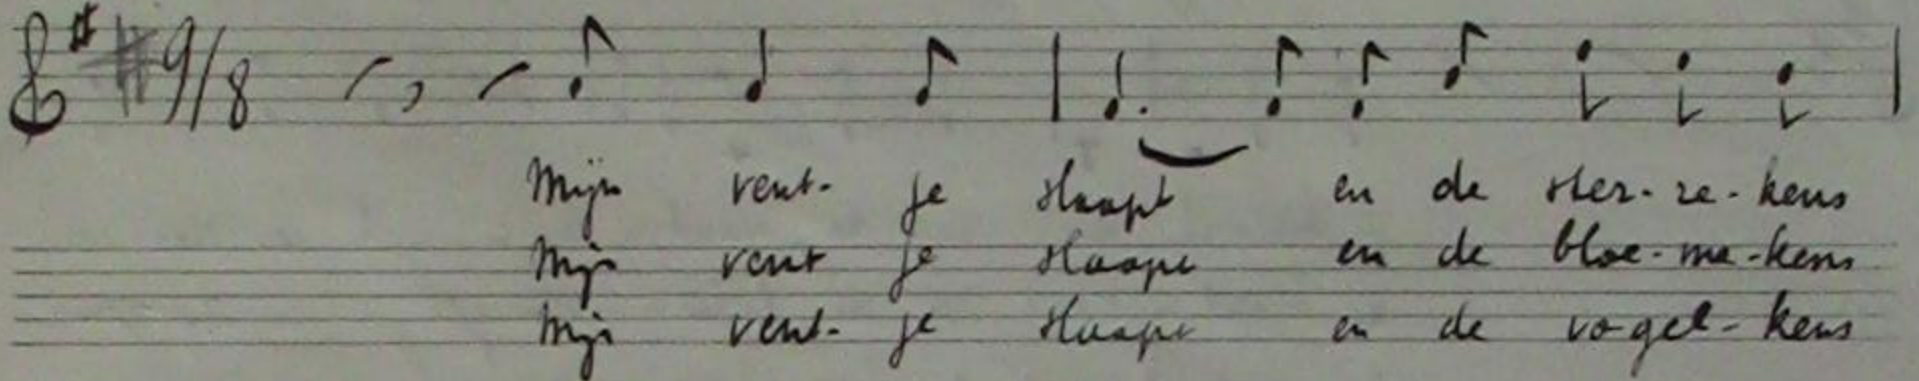 9/8
Mijn vent- je slaapt en de ster-re-kens
Mijn vent je slaapt en de bloe-me-kens
Mijn vent- je slaapt en de vo-gel-kens